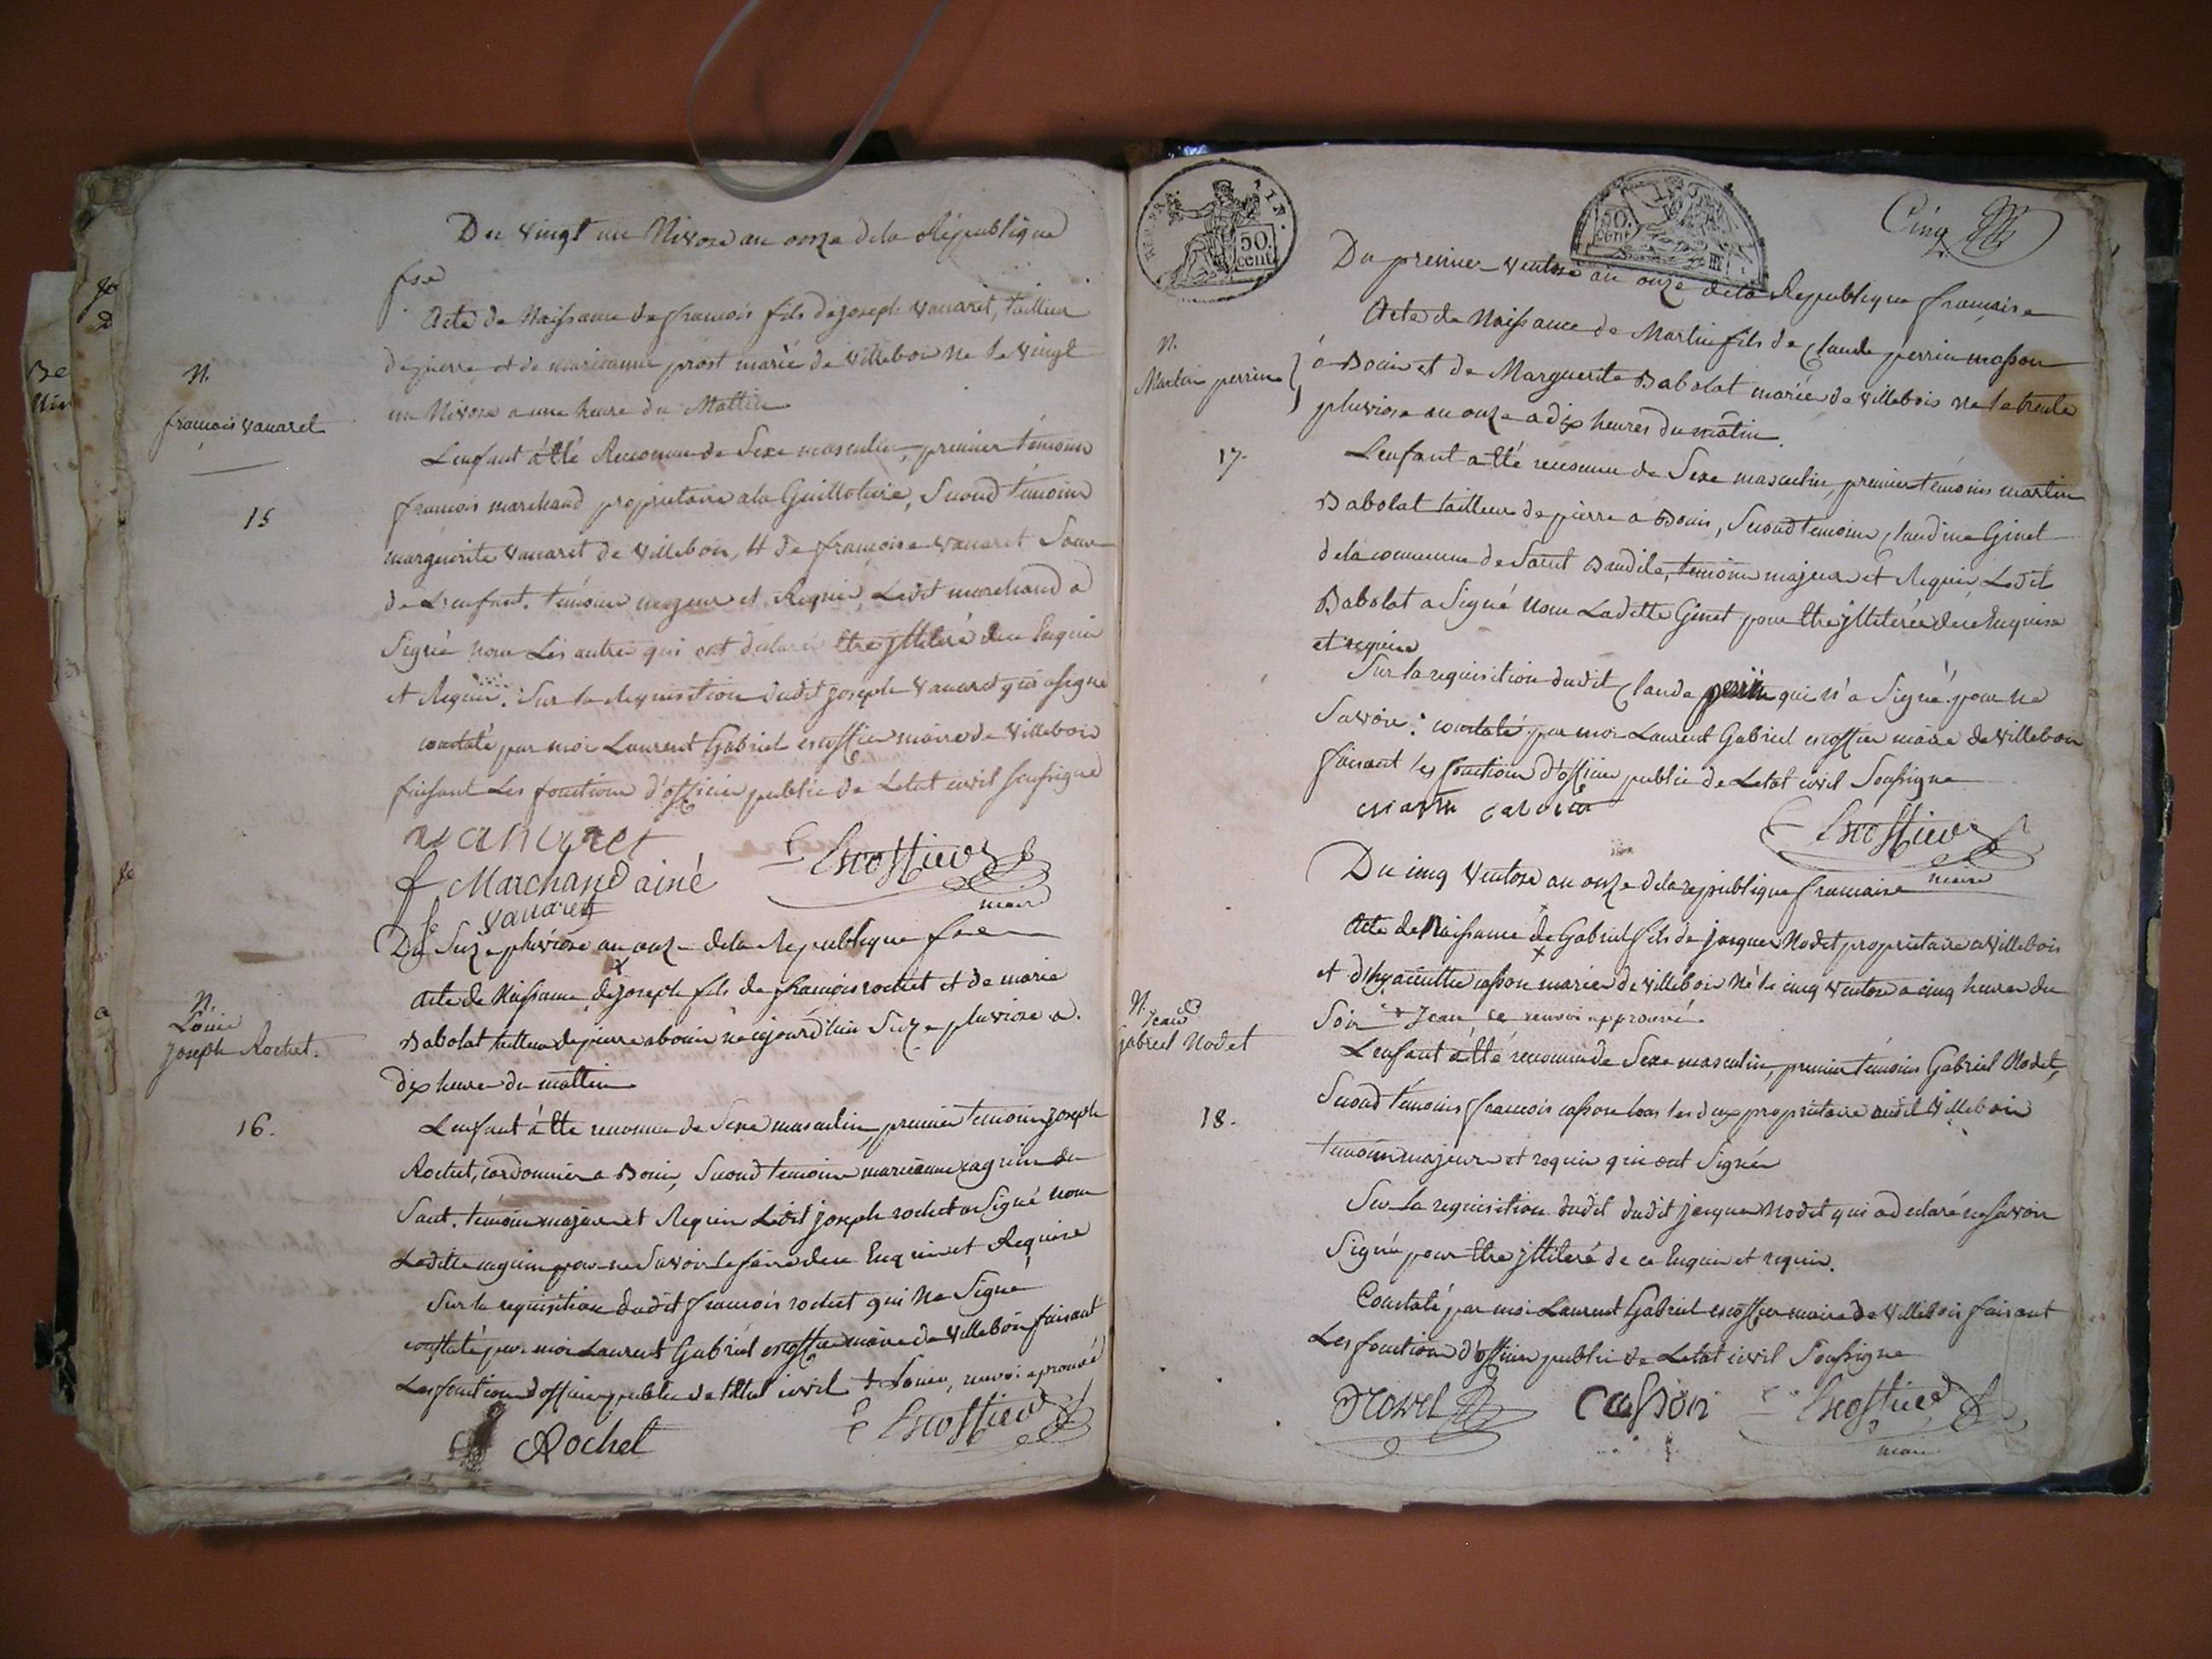 Du vingt un Nivose an onze dela République
fse
Acte de Naissance de francois fils de joseph vanaret, tailleur
de pierre et de marieanne prost marié de villebois ne le vingt
un Nivose a une heure du Mattin
N.
francois vanaret
15
L'enfant a été Reconnu de Sexe masculin, premier témoins
francois marchand proprietaire ala Guillotiere, Second témoins
marguerite vanaret de villebois, et de francoise vanaret Soeur
de L'enfant. témoins majeur et Requis, Ledit marchand a
Signé non Les autres qui ont déclaré Etre illiteré dece Enquis
et Requis. Sur la Requisition dudit joseph vanaret qui a signé
constaté par moi Laurent Gabriel escoffier maire de villebois
faisant Les fonctions d'officier public de Letat civil soussigné
vanaret
f Marchand ainé
f vanaret
Escoffier
maire
Du Seize pluviose an onze dela Republique fse
Acte de Naissance de joseph fils de francois rochet et de marie
Babolat tailleur de pierre a bouis né aujourd'hui Seize pluviose a
dix heure du mattin
N.
Louis
joseph Rochet.
16.
L'enfant a été reconnu de Sexe masculin, premier temoin joseph
Rochet, cordonnier a Bouis, Second temoin marieanne du
Saut. témoins majeur et Requis Ledit joseph rochet a Signé non
Ladite pour ne Savoir le faire dece Enquis et Requise
Sur la requisition dudit francois rochet qui Na Signé
constaté par moi Laurent Gabriel escoffier maire de villebois faisant
Les fonctions d'officier public de l'Etat civil + Louis, renvoi aprouvé
Rochet
Escoffier
REP. FRA.
50.
cent
50.
cent
Cinq
Du premier ventose an onze dela Republique francaise
Acte de Naissance de Martin fils de claude perrin masson
a Bouis et de Marguerite Babolat mariés de villebois ne le trente
pluviose an onze a dix heures du matin.
N.
Martin perrin
17.
L'enfant a été reconnu de Sexe masculin, premier témoins martin
Babolat tailleur de pierre a Bouis, Second temoins claudine Ginet
dela commune de Saint Baudile, temoins majeur et Requis Ledit
Babolat a Signé non Ladite Ginet pour Etre illiterée dece Enquise
et requise
Sur la requisition dudit claude perrin qui n'a Signé pour ne
Savoir. constaté par moi Laurent Gabriel escoffier maire de villebois
faisant les fonctions d'officier public de Letat civil Soussigné
Escoffier
maire
Du cinq ventose an onze dela republique francaise
Acte de Naissance de Gabriel fils de jacques Nodet proprietaire a villebois
et d'hyacinthe casson mariés de villebois Né le cinq ventose a cinq heures du
Soir + Jean ce renvoi approuvé.
N.
Jean
Gabriel Nodet
18.
L'enfant a été reconnu de Sexe masculin, premier témoins Gabriel Nodet,
Second témoins francois casson tous les deux proprietaire audit Villebois
temoins majeur et requis qui ont Signés
Sur la requisition dudit dudit jacques Nodet qui a declaré ne Savoir
Signé pour Etre illiteré de ce Enquis et requis.
Constaté par moi Laurent Gabriel escoffier maire de villebois faisant
Les fonctions d'officier public de Letat civil Soussigné
casson
Escoffier
maire